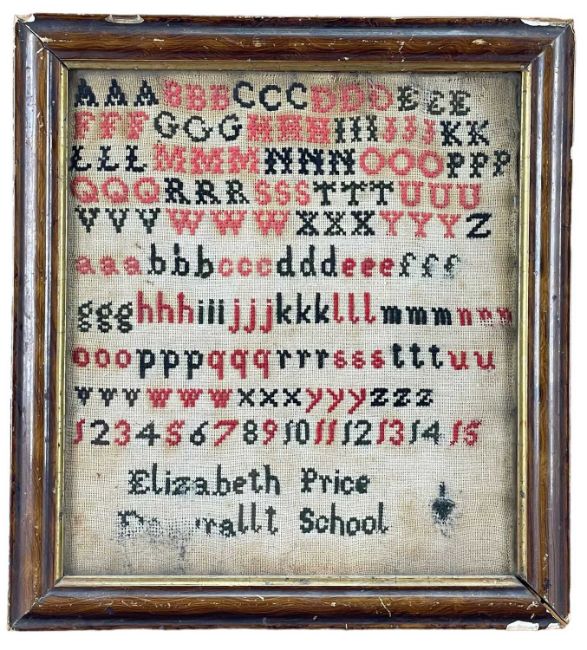 AAABBBCCCDDDEEE
FFFGGGHHHIIIJJJKK
LLLMMMNNNOOOPPP
QQQRRRSSSTTTUUU
VVVWWWXXXYYYZ
aaabbbcccdddeeefff
ggghhhiiijjjkkklllmmmnnn
ooopppqqqrrrssstttuu
vvvwwwxxxyyyzzz
123456789101112131415
Elizabeth Price
School